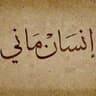 إنسَان مَاني